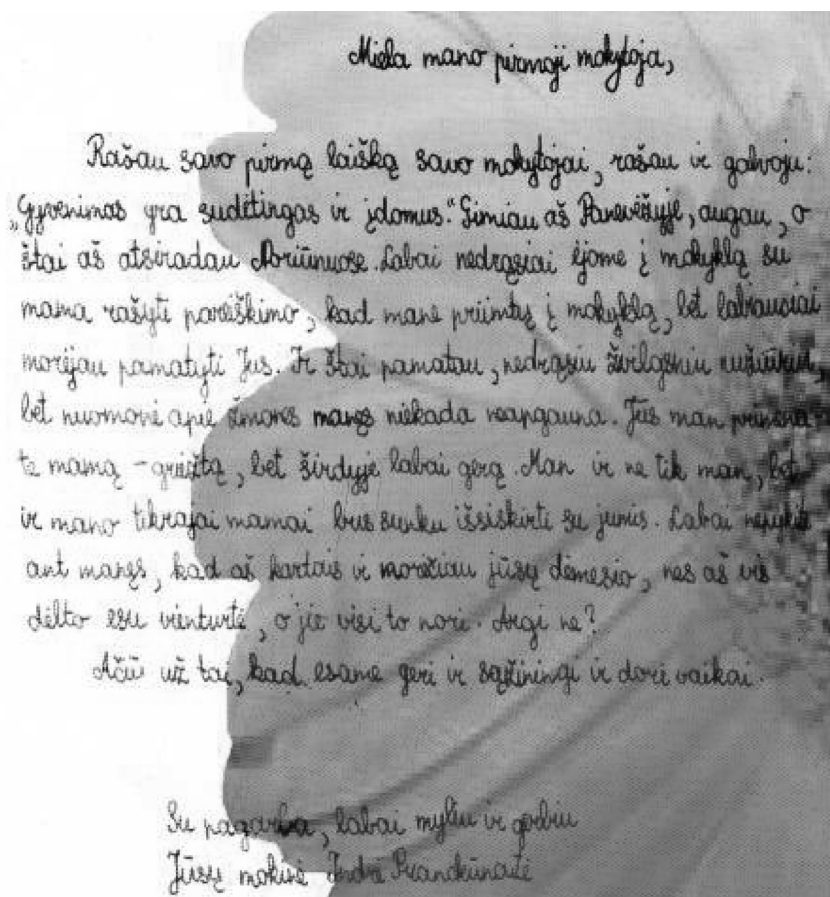 Miela mano pirmoji mokytoja,
Rašau savo pirmą laišką savo mokytojai, rašau ir galvoju:
„Gyvenimas yra sudėtingas ir įdomus." Gimiau aš Panevėžyje, augau, o
štai aš atsiradau Noriūnuose. Labai nedrąsiai ėjome į mokyklą su
mama rašyti pareiškimo, kad mane priimtų į mokyklą, bet labiausiai
norėjau pamatyti Jus. Ir štai pamatau, nedrąsiu žvilgsniu nužiūriu,
bet nuomonė apie žmones manęs niekada neapgauna. Jūs man primena
te mamą - griežtą, bet širdyje labai gerą. Man ir ne tik man, bet
ir mano tikrajai mamai bus sunku išsiskirti su jumis. Labai nepykite
ant manęs, kad aš kartais ir norėčiau jūsų dėmesio, nes aš vis
dėlto esu vienturtė, o jie visi to nori. Argi ne?
Ačiū už tai, kad esame geri ir sąžiningi ir dori vaikai.
Su pagarba, labai myliu ir gerbiu
Jūsų mokinė Indrė